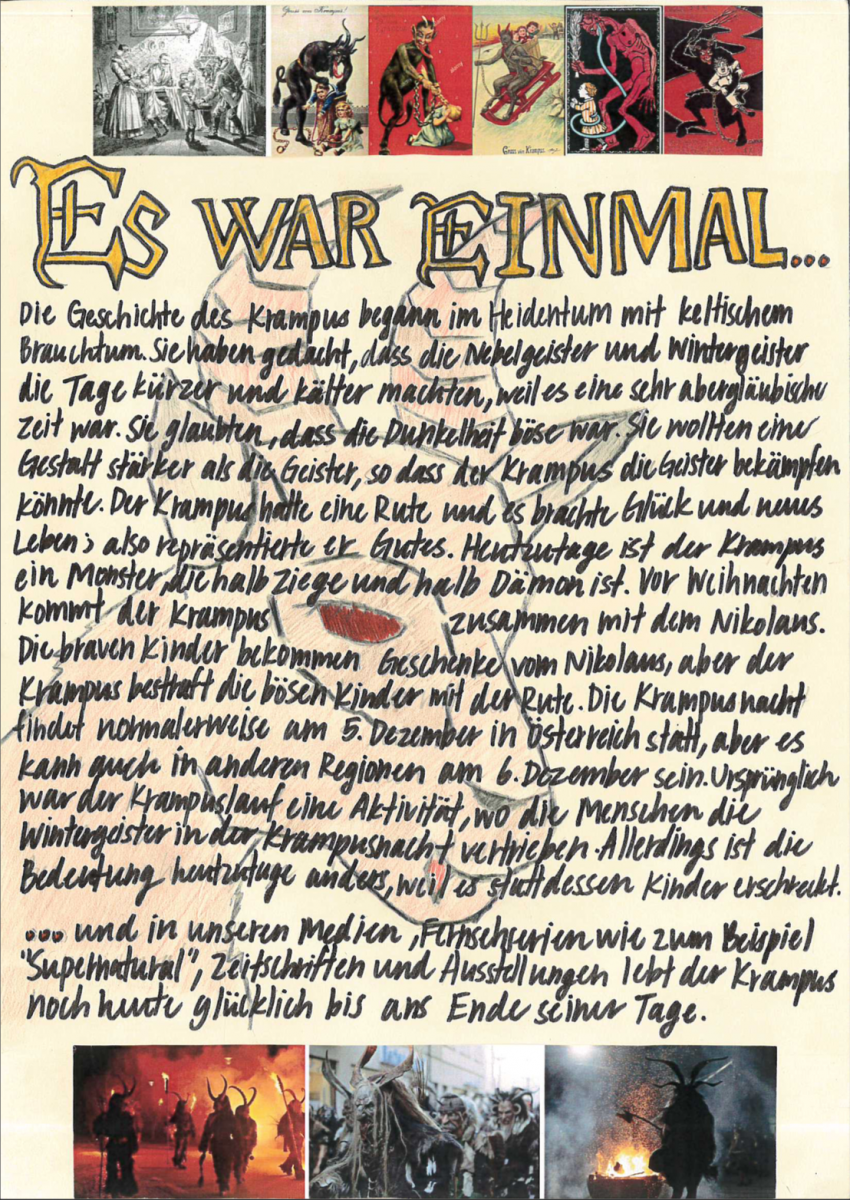 Gruss vom Krampus!
Gruss vom Krampus
ES WAR EINMAL...
Die Geschichte des Krampus begann im Heidentum mit keltischem
Brauchtum. Sie haben gedacht, dass die Nebelgeister und Wintergeister
die Tage kürzer und kälter machten, weil es eine sehr abergläubische
Zeit war. Sie glaubten, dass die Dunkelheit böse war. Sie wollten eine
Gestalt stärker als die Geister, so dass der Krampus die Geister bekämpfen
könnte. Der Krampus hatte eine Rute und es brachte Glück und neues
Leben; also repräsentierte er Gutes. Heutzutage ist der Krampus
ein Monster, die halb Ziege und halb Dämon ist. Vor Weihnachten
kommt der Krampus zusammen mit dem Nikolaus.
Die braven Kinder bekommen Geschenke vom Nikolaus, aber der
Krampus bestraft die bösen Kinder mit der Rute. Die Krampusnacht
findet normalerweise am 5. Dezember in Österreich statt, aber es
kann auch in anderen Regionen am 6. Dezember sein. Ursprünglich
war der Krampuslauf eine Aktivität, wo die Menschen die
Wintergeister in der Krampusnacht vertrieben. Allerdings ist die
Bedeutung heutzutage anders, weil es stattdessen Kinder erschreckt.
... und in unseren Medien, Fernsehserien wie zum Beispiel
"Supernatural", Zeitschriften und Ausstellungen lebt der Krampus
noch heute glücklich bis ans Ende seiner Tage.